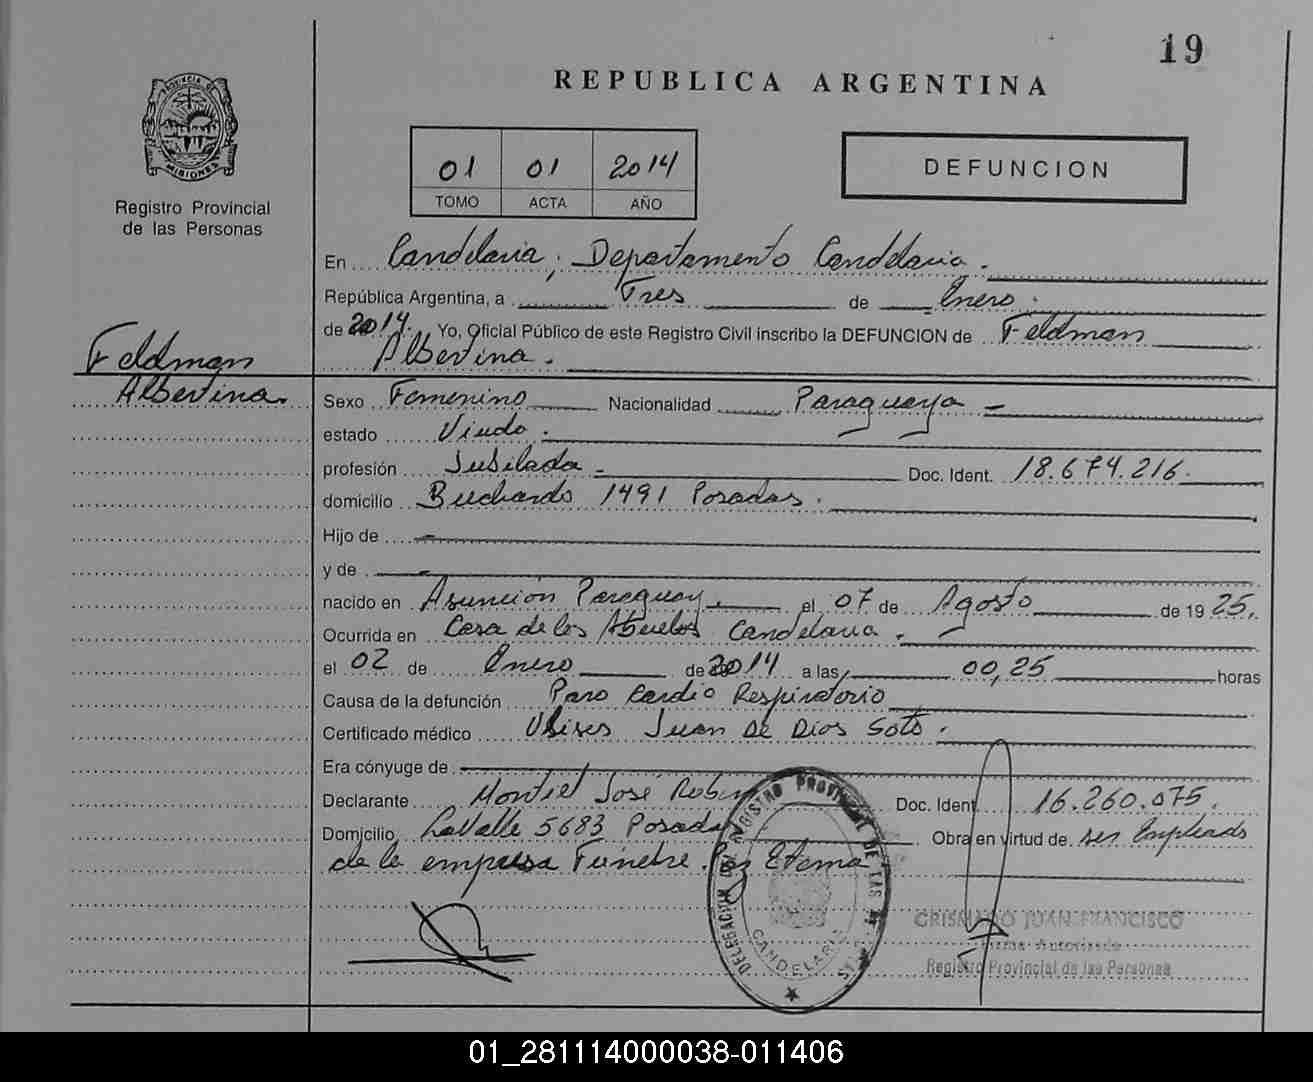 19
REPUBLICA ARGENTINA
PROVINCIA DE MISIONES
Registro Provincial
de las Personas
01 01 2014
TOMO ACTA AÑO
DEFUNCION
En Candelaria, Departamento Candelaria.
República Argentina, a Tres de Enero.
de 2014. Yo, Oficial Público de este Registro Civil inscribo la DEFUNCION de Feldman
Albertina.
Feldman
Albertina.
Sexo Femenino Nacionalidad Paraguaya
estado Viudo.
profesión Jubilada - Doc. Ident. 18.674.216.
domicilio Buchardo 1491 Posadas.
Hijo de -
y de -
nacido en Asunción Paraguay. el 07 de Agosto de 1925.
Ocurrida en Casa de los Abuelos Candelaria.
el 02 de Enero de 2014 a las 00,25 horas
Causa de la defunción Paro Cardio Respiratorio
Certificado médico Ulises Juan De Dios Soto.
Era cónyuge de
Declarante Montiel José Rubén Doc. Ident. 16.260.075.
Domicilio Lavalle 5683 Posadas Obra en virtud de ser Empleado
de la empresa Fúnebre Paz Eterna
DELEGACION DEL REGISTRO PROVINCIAL DE LAS PERSONAS
CANDELARIA
JUAN FRANCISCO
Firma Autorizada
Registro Provincial de las Personas
01_281114000038-011406